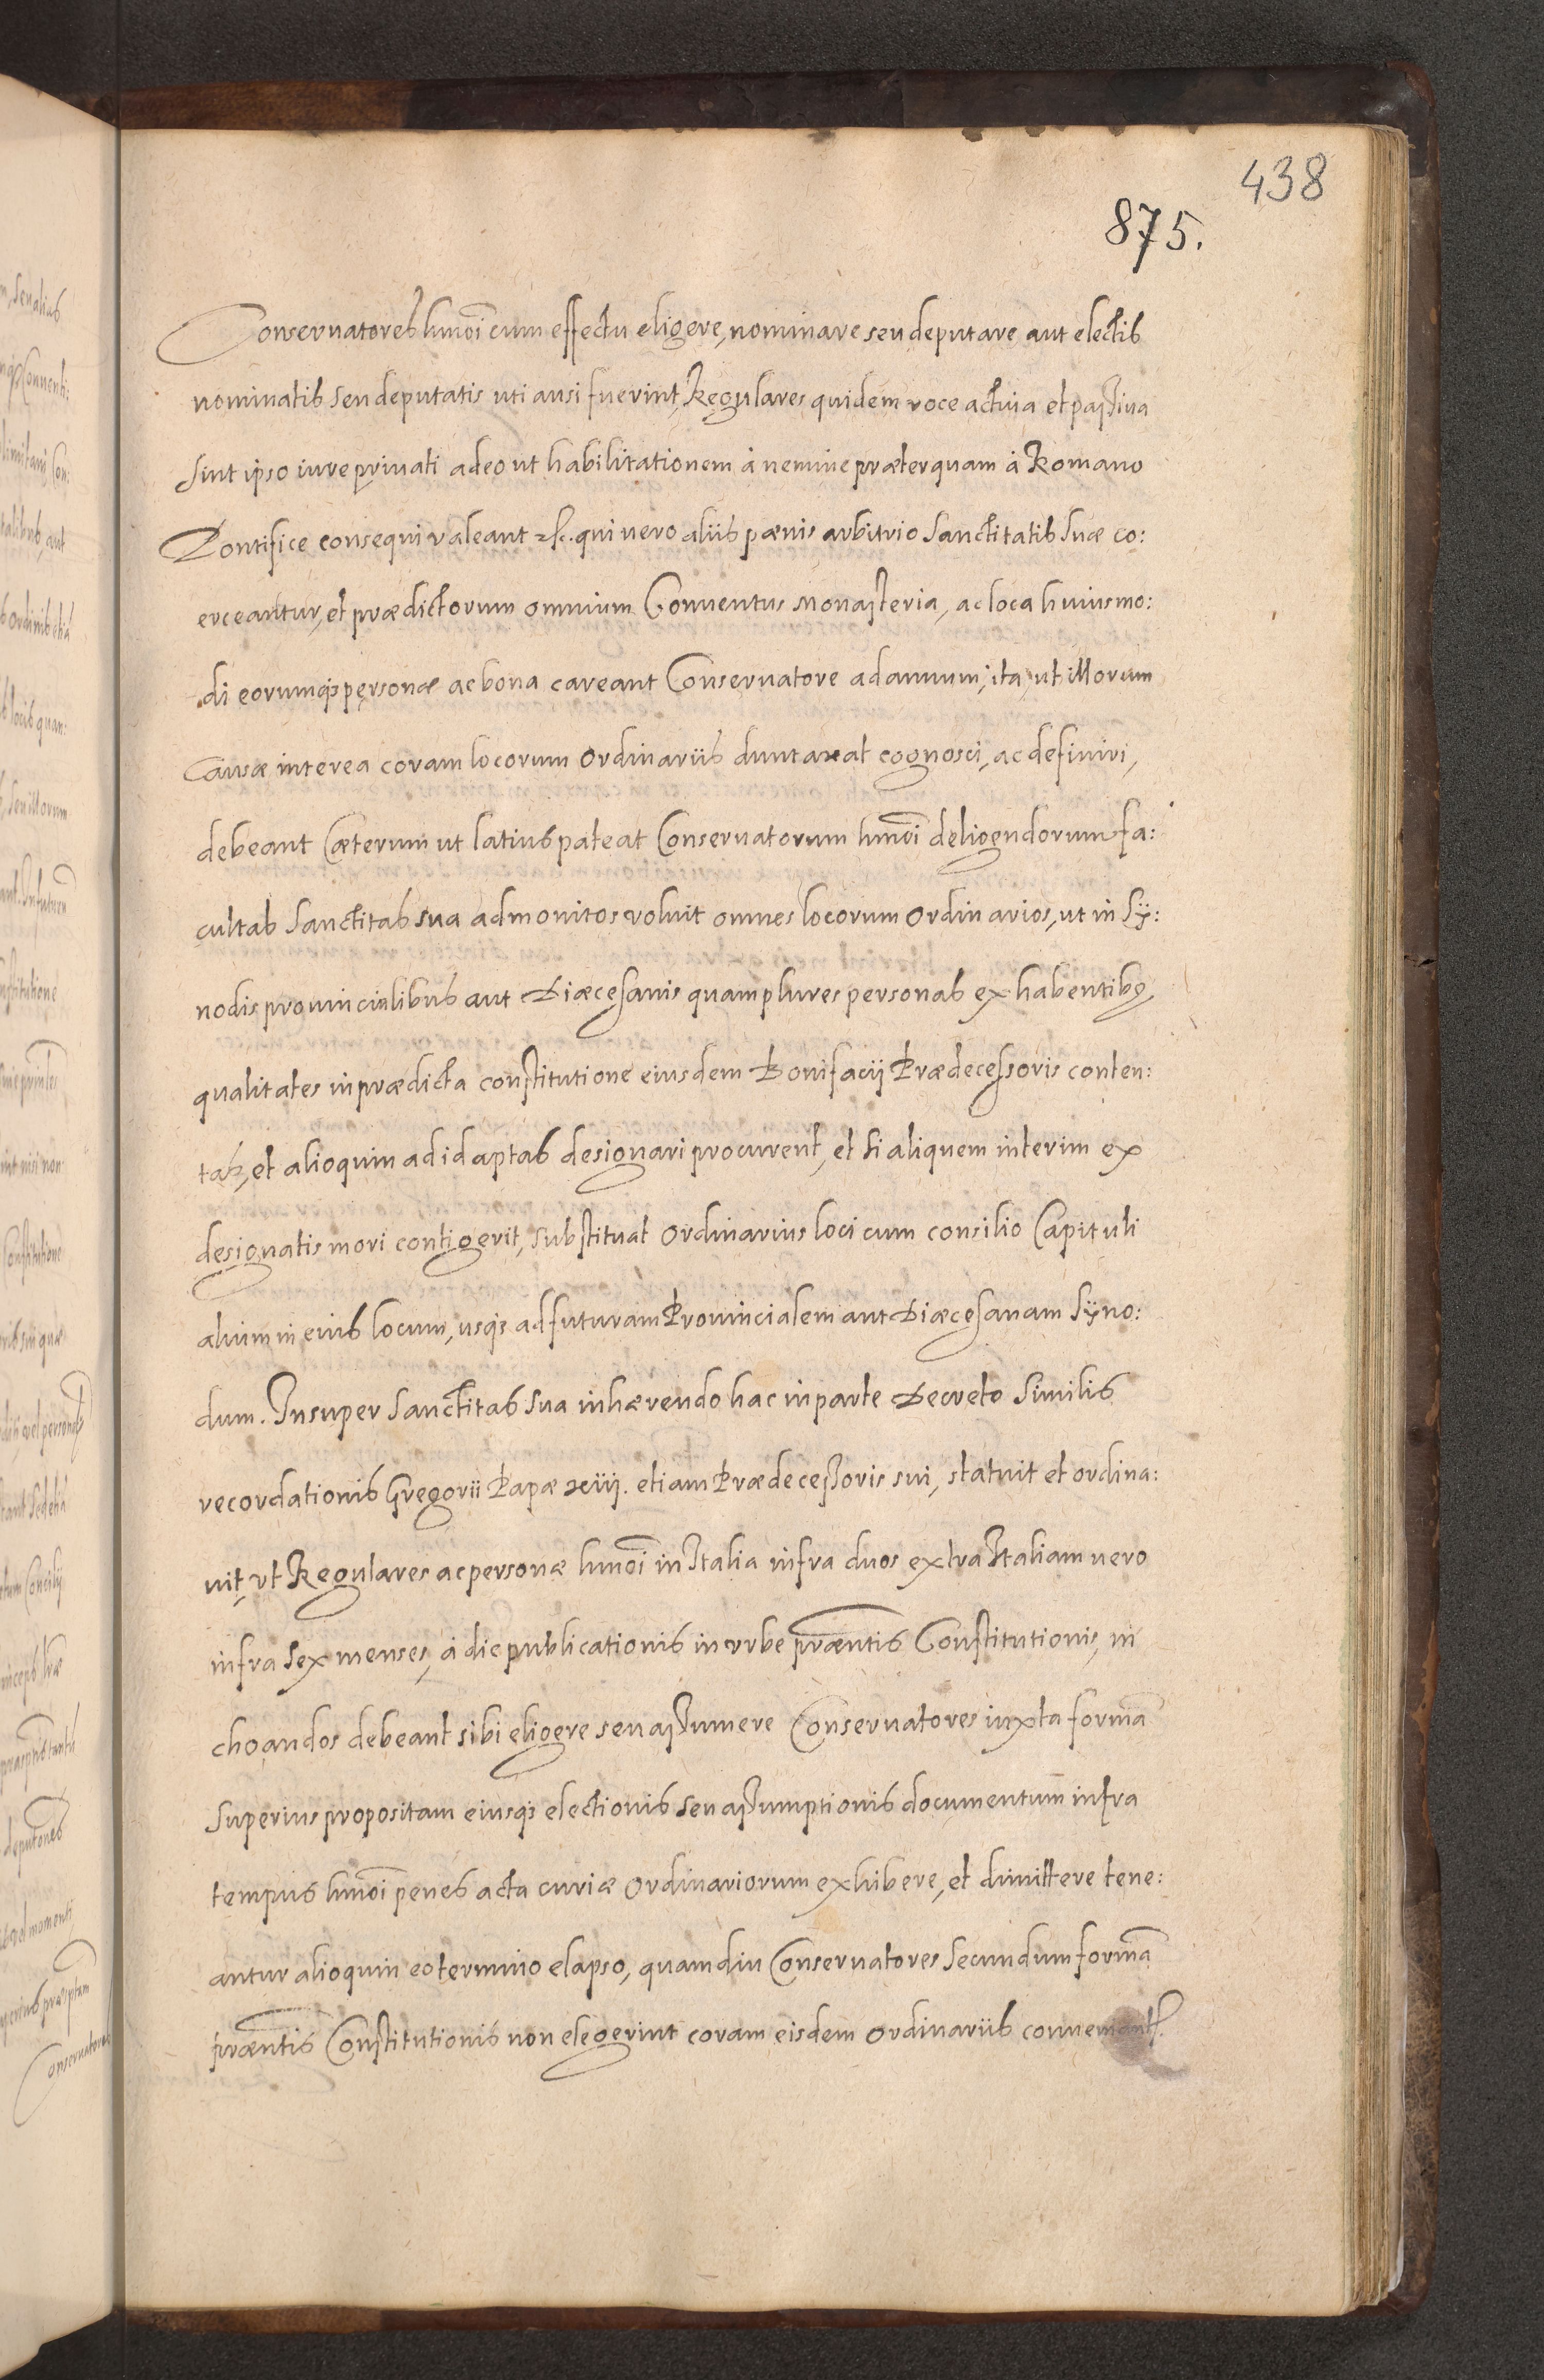 438
875.
Conservatores hmōi cum effectu eligere, nominare seu deputare aut electis
nominatis seu deputatis uti ausi fuerint, Regulares quidem voce actiua et passiua
sint ipso iure priuati adeo ut habilitationem à nemine præterquam à Romano
Pontifice consequi valeant &c. qui vero aliis pænis arbitrio Sanctitatis suæ co:
erceantur, et prædictorum omnium Conuentus Monasteria, ac loca huiusmo:
di eorumq; personæ ac bona careant Conseruatore ad annum, ita, ut illorum
Causæ interea coram locorum Ordinariis duntaxat cognosci, ac definiri,
debeant Cæterum ut latius pateat Conseruatorum hmōi deligendorum fa:
cultas Sanctitas sua admonitos voluit omnes locorum ordinarios, ut in Sÿ:
nodis prouincialibus aut Diæcesanis quamplures personas ex habentibꝫ,
qualitates in prædicta constitutione eiusdem Bonifacij Prædecessoris conten:
tas, et alioquin ad id aptas designari procurent, et si aliquem interim ex
designatis mori contigerit, substituat Ordinarius loci cum consilio Capituli
alium in eius locum, usq; ad futuram Prouincialem aut Diæcesanam Sÿno:
dum. Insuper Sanctitas sua inhærendo hac in parte Decreto similis
recordationis Gregorii Papæ xiij. etiam Prædecessoris sui, statuit et ordina:
uit, ut Regulares ac personæ hmōi in Italia infra duos extra Italiam uero
infra sex menses, à die publicationis in vrbe præntis Constitutionis, in
choandos debeant sibi eligere seu assumere Conseruatores iuxta formā
superius propositam eiusq; electionis seu assumptionis documentum infra
tempus hmōi penes acta curiæ Ordinariorum exhibere, et dimittere tene:
antur alioquin eo termino elapso, quamdiu Conseruatores secundum formā
præntis Constitutionis non elegerint coram eisdem Ordinariis